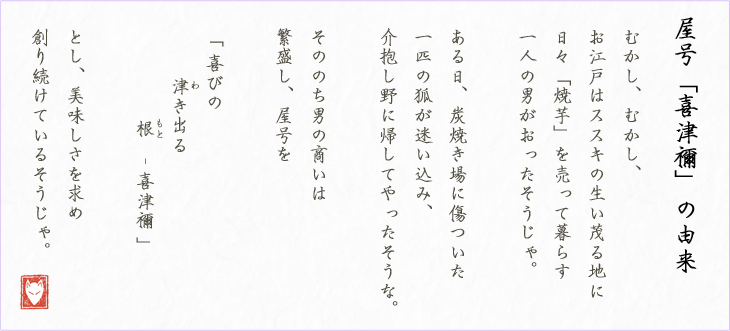 屋号「喜津禰」の由来
むかし、むかし、
お江戸はススキの生い茂る地に
日々「焼芋」を売って暮らす
一人の男がおったそうじゃ。
ある日、炭焼き場に傷ついた
一匹の狐が迷い込み、
介抱し野に帰してやったそうな。
そののち男の商いは
繁盛し、屋号を
「喜びの
津き出る
わ
根 － 喜津禰」
もと
とし、美味しさを求め
創り続けているそうじゃ。